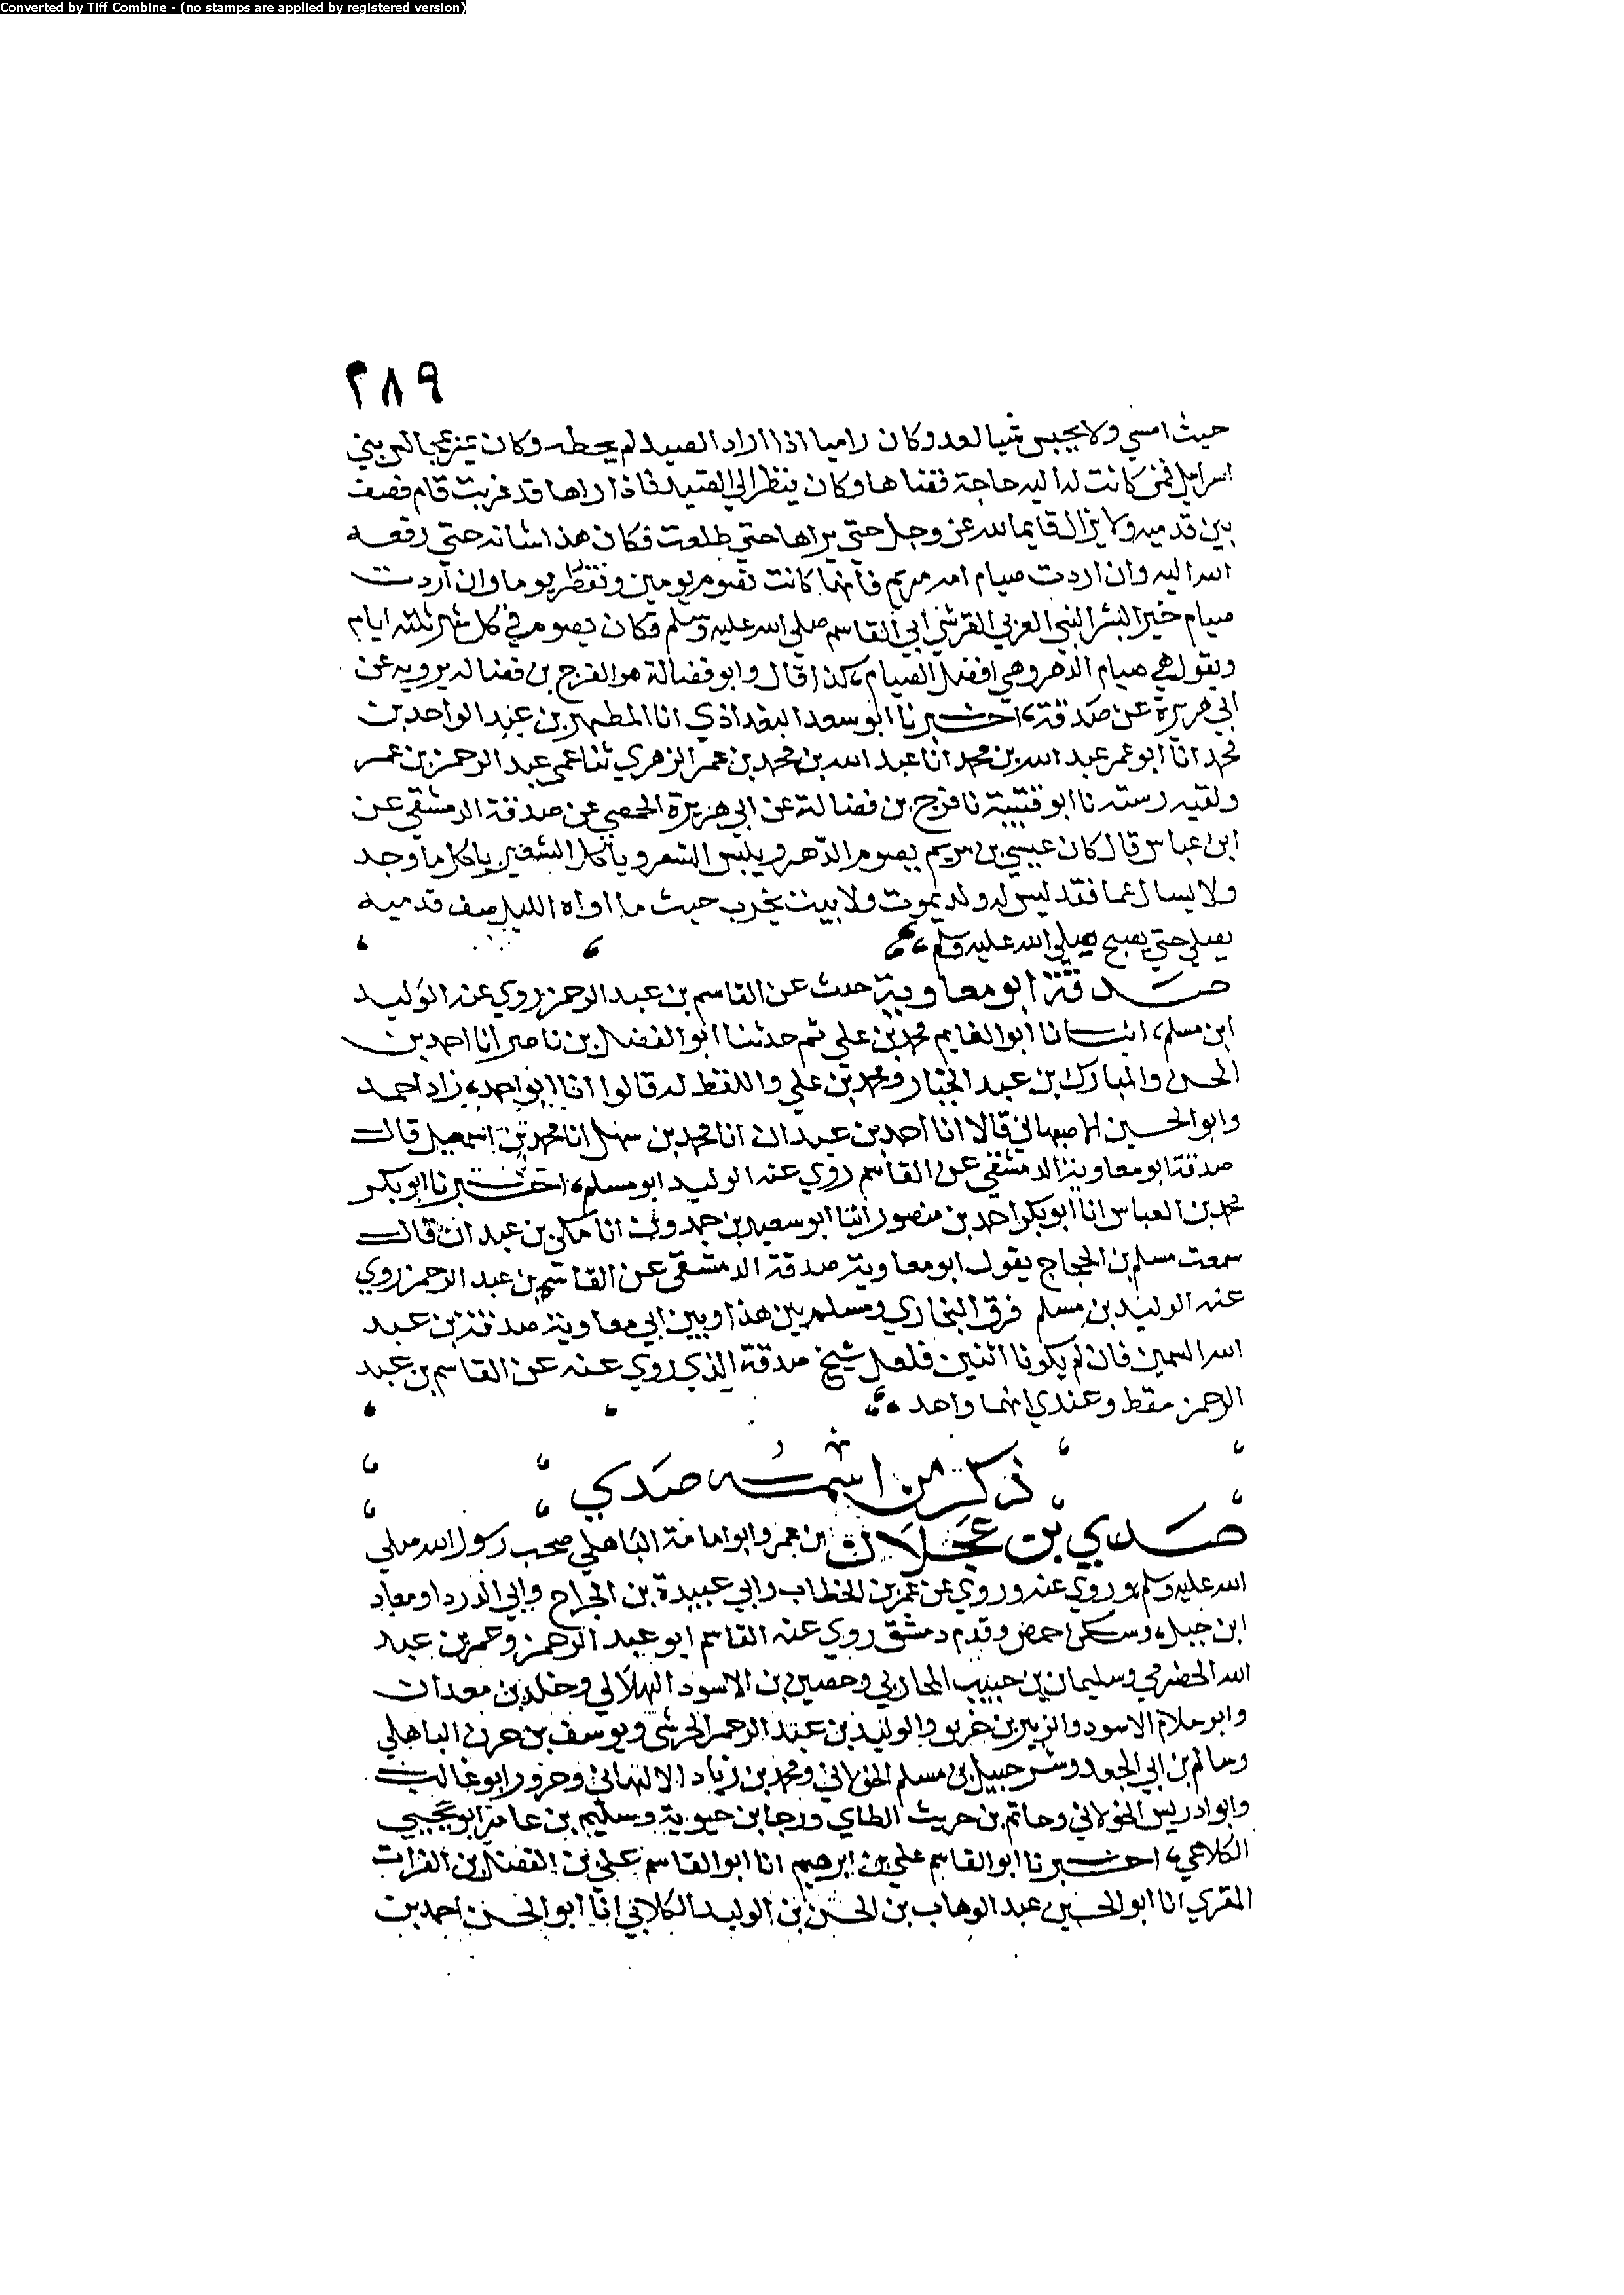 Converted by Tiff Combine - (no stamps are applied by registered version)
٢٨٩
حيث امسي ولا يحبس شيا لغد وكان راميا اذا اراد الصيد لم يخطه وكان يمر بمجالس بني
اسرايل فمن كانت له اليه حاجة قضاها وكان ينظر الي الشمس فاذا راها قد غربت قام فصف
بين قدميه ولا يزال قايما لله عز وجل حتي يراها حتي طلعت فكان هذا شانه حتي رفعه
الله اليه وان اردت صيام امه مريم فانها كانت تصوم يومين وتفطر يوما وان اردت
صيام خير البشر النبي العربي القرشي ابي القاسم صلي الله عليه وسلم فكان يصوم في كل شهر ثلثه ايام
ويقول هي صيام الدهر وهي افضل الصيام كذا قال وابو فضالة هو الفرج بن فضاله يرويه عن
ابي هريرة عن صدقة، اخبرنا ابو سعد البغداذي انا المطهر بن عبد الواحد بن
محمد انا ابو عمر عبد الله بن محمد انا عبد الله بن محمد بن عمر الزهري ثنا عمي عبد الرحمن بن عمر
ولقبه رسته نا ابو قتيبة نا فرج بن فضالة عن ابي هريرة الحمصي عن صدقة الدمشقي عن
ابن عباس قال كان عيسي بن مريم يصوم الدهر ويلبس الشعر وياكل الشعير ياكل ما وجد
ولا يسال عما فقد ليس له ولد يموت ولا بيت يخرب حيث ما اواه الليل صف قدميه
يصلي حتي يصبح صلي الله عليه وسلم
صدقة ابو معاوية حدث عن القاسم بن عبد الرحمن روي عنه الوليد
ابن مسلم، انبانا ابو الغايم محمد بن علي ثم حدثنا ابو الفضل بن ناصر انا احمد بن
الحسن والمبارك بن عبد الجبار ومحمد بن علي واللفظ له قالوا انا ابو احمد، زاد احمد
وابو الحسين الاصبهاني قالا انا احمد بن عبدان انا محمد بن سهل انا محمد بن اسمعيل قال
صدقة ابو معاوية الدمشقي عن القاسم روي عنه الوليد ابو مسلم، اخبرنا ابو بكر
محمد بن العباس انا ابو بكر احمد بن منصور انبا ابو سعيد بن حمدون انا مكي بن عبدان قال
سمعت مسلم بن الحجاج يقول ابو معاوية صدقة الدمشقي عن القاسم بن عبد الرحمن روي
عنه الوليد بن مسلم فرق البخاري ومسلم بين هذا وبين ابي معاوية صدقة بن عبد
الله السمين فان لم يكونا اثنين فلعل شيخ صدقة الذي روي عنه عن القاسم بن عبد
الرحمن سقط وعندي انهما واحد
ذكر من اسمه صدي
صدي بن عجلان ابن عمر وابو امامة الباهلي صحب رسول الله صلي
الله عليه وسلم وروي عنه وروي عن عمر بن الخطاب وابي عبيدة بن الجراح وابي الدردا ومعاد
ابن جبل، وسكن حمص وقدم دمشق روي عنه القاسم ابو عبد الرحمن وعمر بن عبد
الله الحضرمي وسليمان بن حبيب المحاربي وحصين بن الاسود الهلالي وخلد بن معدان
وابو سلام الاسود والزبير بن خريق والوليد بن عبد الرحمن الجرشي ويوسف بن حزن الباهلي
وسالم بن ابي الجعد وشرحبيل بن مسلم الخولاني ومحمد بن زياد الالهاني وحزور ابو غالب
وابو ادريس الخولاني وحاتم بن حريث الطاي ورجا بن حيوية وسليم بن عامر ابو يحيي
الكلاعي، اخبرنا ابو القاسم علي بن ابرهيم انا ابو القاسم علي بن الفضل بن الفرات
المقري انا ابو الحسين عبد الوهاب بن الحسن بن الوليد الكلابي انا ابو الحسن احمد بن